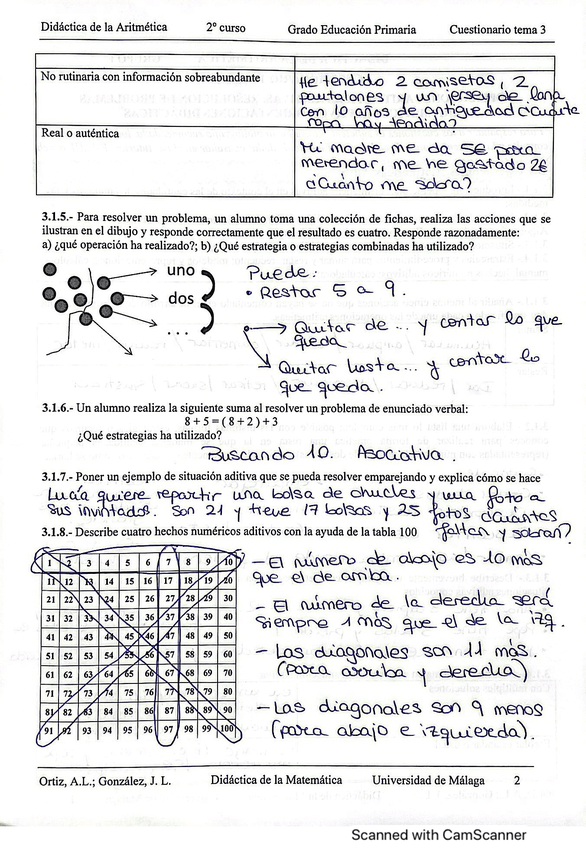 Didáctica de la Aritmética 2º curso Grado Educación Primaria Cuestionario tema 3
No rutinaria con información sobreabundante
He tendido 2 camisetas, 2
pantalones y un jersey de lana
con 10 años de antigüedad ¿Cuánta
ropa hay tendida?
Real o auténtica
Mi madre me da 5€ para
merendar, me he gastado 2€
¿Cuánto me sobra?
3.1.5.- Para resolver un problema, un alumno toma una colección de fichas, realiza las acciones que se
ilustran en el dibujo y responde correctamente que el resultado es cuatro. Responde razonadamente:
a) ¿qué operación ha realizado?; b) ¿Qué estrategia o estrategias combinadas ha utilizado?
uno
dos
. . .
Puede:
• Restar 5 a 9.
Quitar de ... y contar lo que
queda
Quitar hasta ... y contar lo
que queda.
3.1.6.- Un alumno realiza la siguiente suma al resolver un problema de enunciado verbal:
8 + 5 = ( 8 + 2 ) + 3
¿Qué estrategias ha utilizado?
Buscando 10. Asociativa.
3.1.7.- Poner un ejemplo de situación aditiva que se pueda resolver emparejando y explica cómo se hace
Lucía quiere repartir una bolsa de chucles y una foto a
sus invitados. Son 21 y tiene 17 bolsas y 25 fotos ¿Cuántas
faltan y sobran?
3.1.8.- Describe cuatro hechos numéricos aditivos con la ayuda de la tabla 100
1 2 3 4 5 6 7 8 9 10
11 12 13 14 15 16 17 18 19 20
21 22 23 24 25 26 27 28 29 30
31 32 33 34 35 36 37 38 39 40
41 42 43 44 45 46 47 48 49 50
51 52 53 54 55 56 57 58 59 60
61 62 63 64 65 66 67 68 69 70
71 72 73 74 75 76 77 78 79 80
81 82 83 84 85 86 87 88 89 90
91 92 93 94 95 96 97 98 99 100
- El número de abajo es 10 más
que el de arriba.
- El número de la derecha será
siempre 1 más que el de la izq.
- Las diagonales son 11 más.
(para arriba y derecha)
- Las diagonales son 9 menos
(para abajo e izquierda).
Ortiz, A.L.; González, J. L. Didáctica de la Matemática Universidad de Málaga 2
Scanned with CamScanner